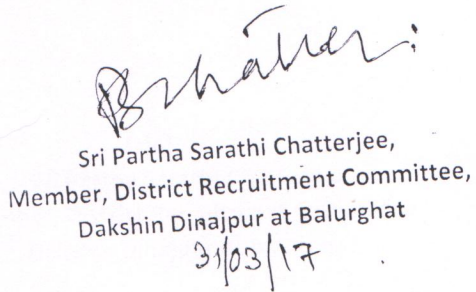 Sri Partha Sarathi Chatterjee,
Member, District Recruitment Committee,
Dakshin Dinajpur at Balurghat
31/03/17